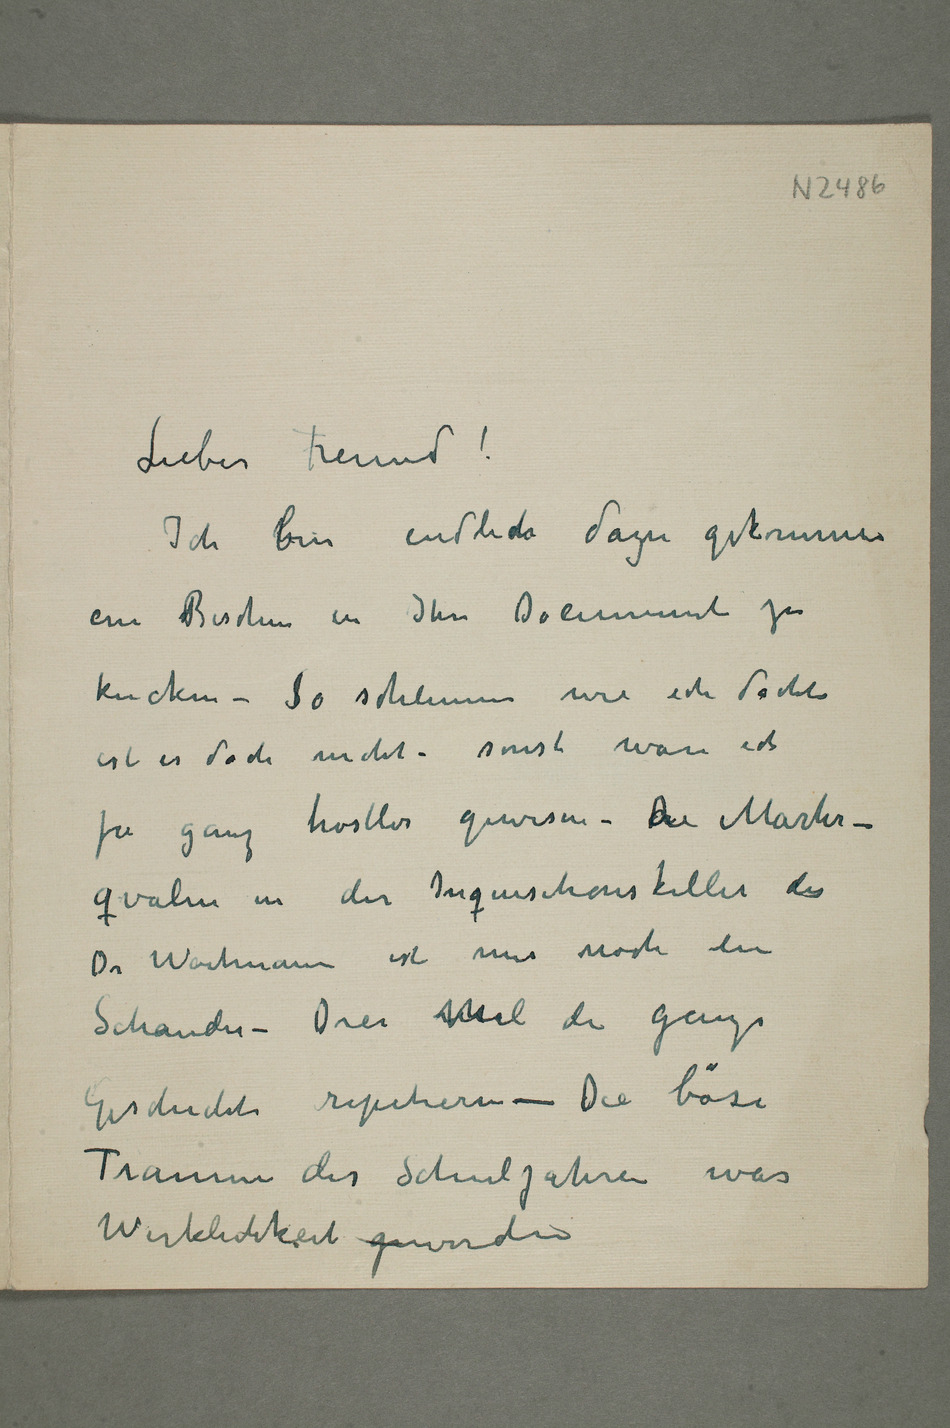 N2486
Lieber Freund!
Ich bin endlich dazu gekommen
ein Bischen in Ihre Document zu
kucken – So schlimm wie ich dachte
ist es doch nicht – sonst wäre ich
ja ganz trostlos gewesen – Die Marter–
qvalen in der Inquisitionskeller des
Dr Wortmann ist mir noch ein
Schauder – Drei Mal die ganze
Geschichte repetieren – Die böse
Traumen des Schuljahren war
Wirklichkeit geworden